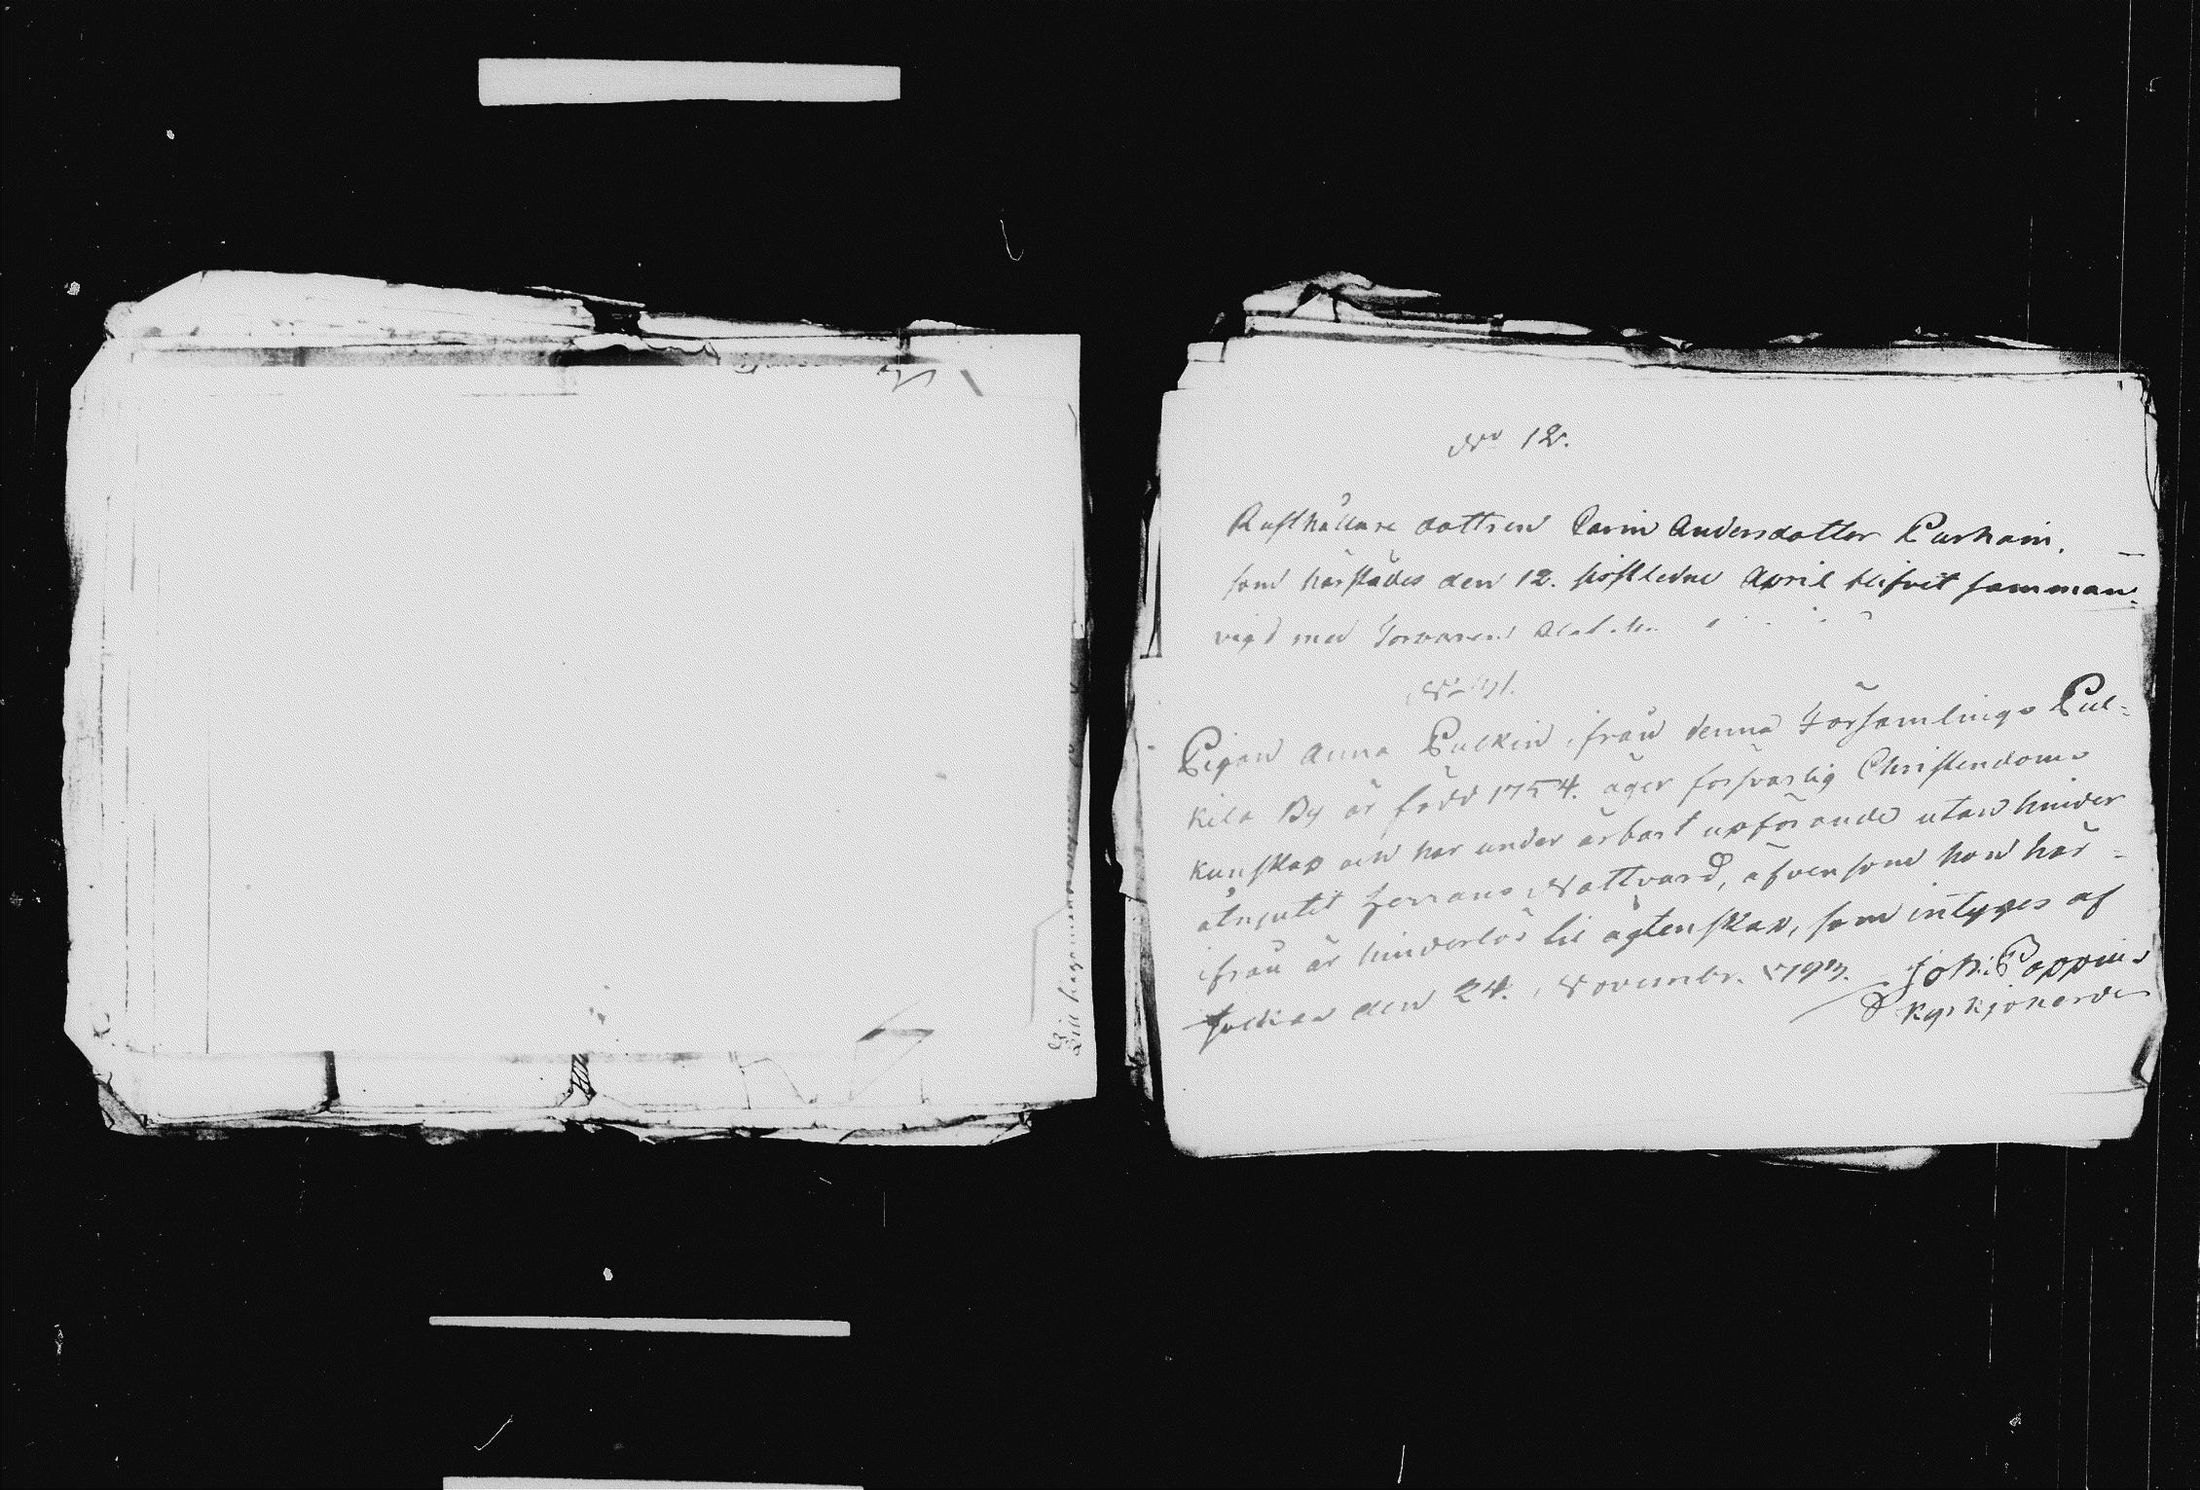 No 12.
Rusthållare dottren Carin Andersdotter Purhain,
som härstädes den 12. sistledne April blifvit samman-
vigd med
Pigan Anna Pulkin, ifrån denna Församlings Pul-
kila By är född 1754. äger försvarlig Christendoms
kunskap och har under ärbart upförande utan hinder
åtnjutit Herrans Nattvard, äfvensom hon här-
ifrån är hinderlös til ägtenskap, som intyges af
den 24. Novembr. 1793. Joh: Poppius
Kyrkjoherde
Till